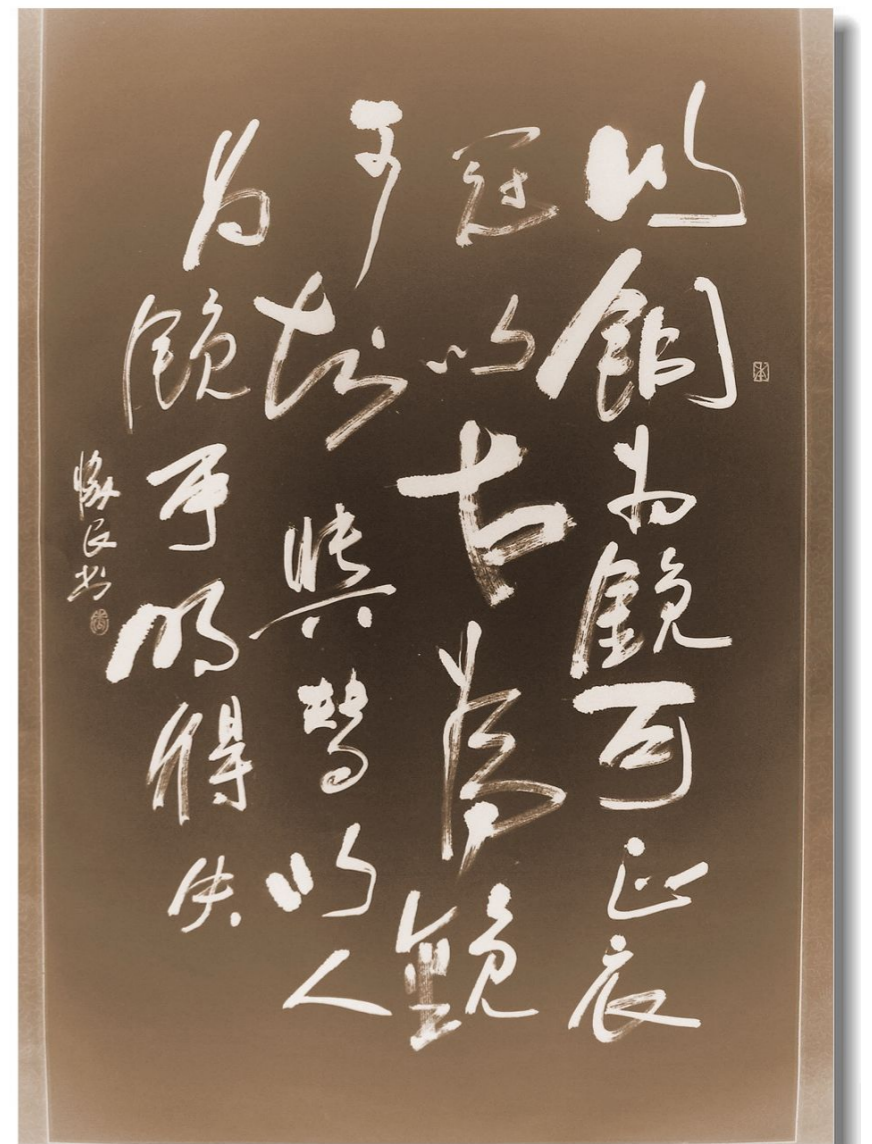 以銅为鏡可正衣
冠以古為鏡
可知興替以人
为鏡可明得失
民书